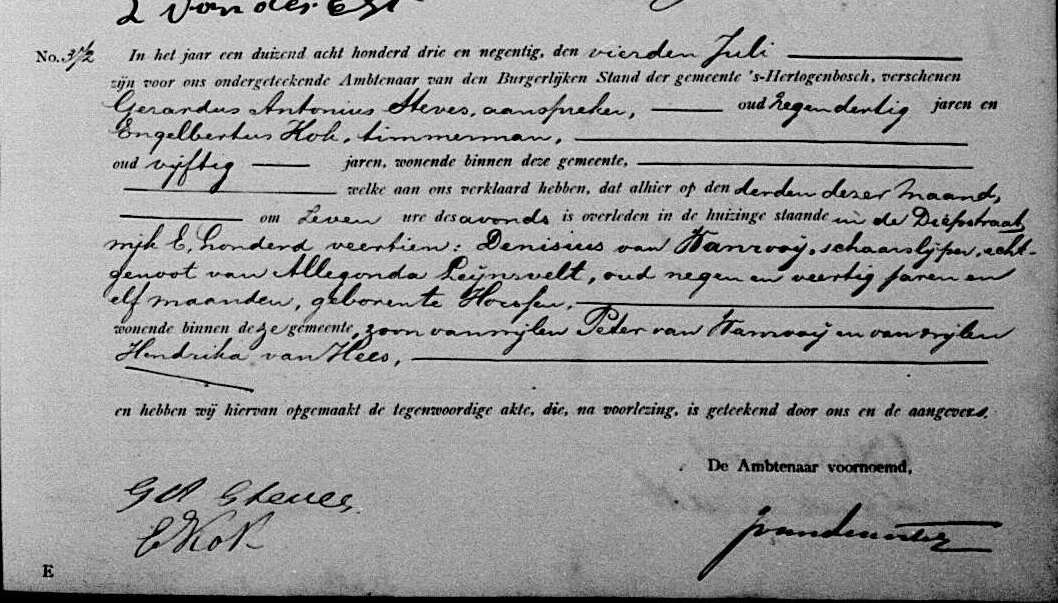 L van der Est
No. 312 In het jaar een duizend acht honderd drie en negentig, den vierden Juli
zijn voor ons ondergeteekende Ambtenaar van den Burgerlijken Stand der gemeente 's-Hertogenbosch, verschenen
Gerardus Antonius Steves, aanspreker, oud negendertig jaren en
Engelbertus Kok, timmerman,
oud vijftig jaren, wonende binnen deze gemeente,
welke aan ons verklaard hebben, dat alhier op den derden dezer maand,
om zeven ure des avonds is overleden in de huizinge staande in de Diepstraat
wijk E, honderd veertien: Denisius van Hamrooij, schaarslijper, echt-
genoot van Allegonda Leijnsvelt, oud negen en veertig jaren en
elf maanden, geboren te
wonende binnen deze gemeente, zoon van wijlen Peter van Hamrooij en van wijlen
Hendrika van Hees,
en hebben wij hiervan opgemaakt de tegenwoordige akte, die, na voorlezing, is geteekend door ons en de aangevers.
De Ambtenaar voornoemd,
GA Steves
E Kok
E